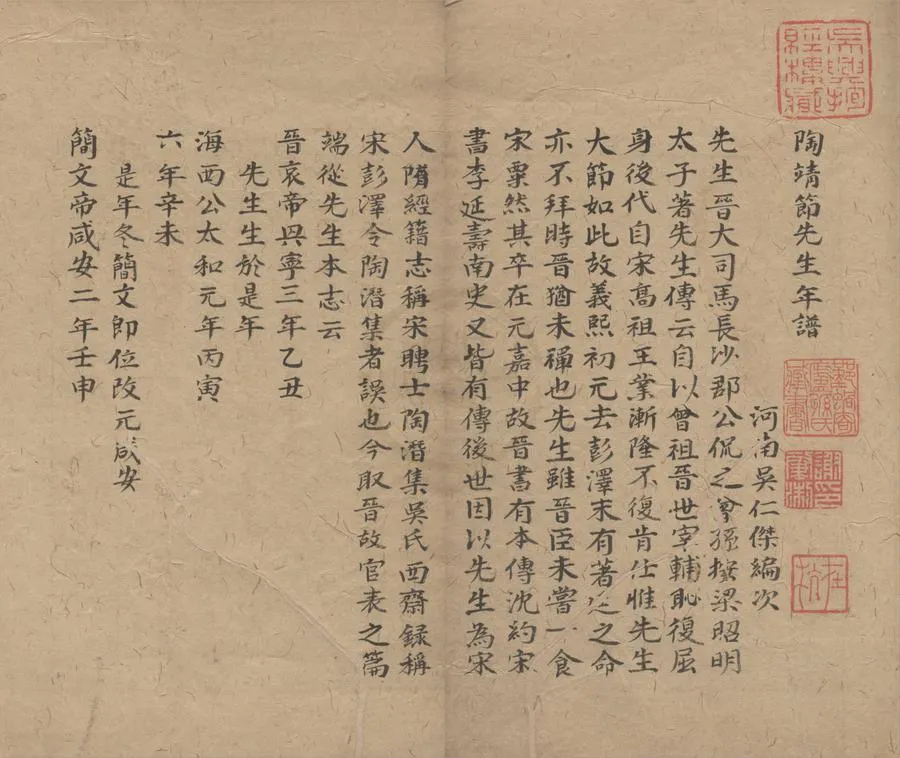 陶靖節先生年譜
河南吳仁傑編次
先生晉大司馬長沙郡公侃之曾孫按梁昭明
太子著先生傳云自以曾祖晉世宰輔恥復屈
身後代自宋髙祖王業漸隆不復肯仕惟先生
大節如此故義熙初元去彭澤末有著作之命
亦不拜時晉猶未禪也先生雖晉臣未嘗一食
宋粟然其卒在元嘉中故晉書有本傳沈約宋
書李延壽南史又皆有傳後世因以先生為宋
人隋經籍志稱宋聘士陶潛集吳氏西齋錄稱
宋彭澤令陶潛集者誤也今取晉故官表之篇
端從先生本志云
晉哀帝興寧三年乙丑
先生生於是年
海西公太和元年丙寅
六年辛未
是年冬簡文即位改元咸安
簡文帝咸安二年壬申